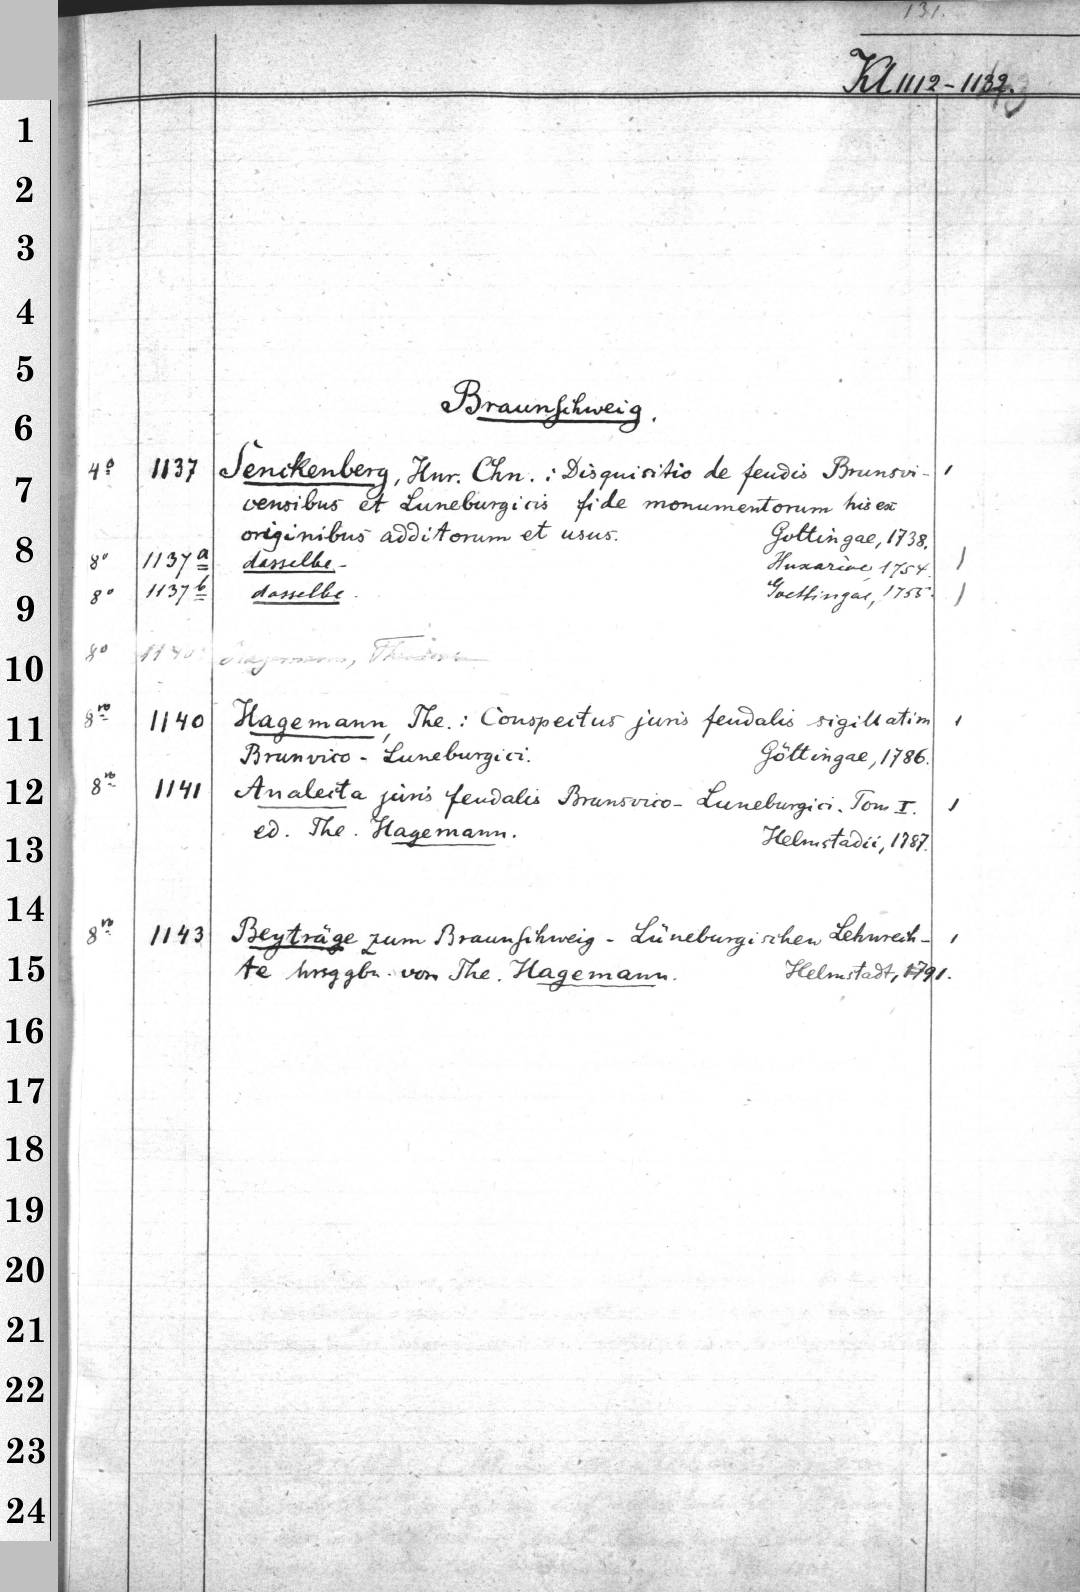 131.
Kl 1112-1132.
1
2
3
4
5
Braunschweig.
6
4º 1137 Senckenberg, Hnr. Chn.: Disquisitio de feudis Brunsvi-
7
vensibus et Luneburgicis fide monumentorum his ex
originibus additorum et usus. Gottingae, 1738.
8
8º 1137 a dasselbe. Huxariae, 1754.
8º 1137 b dasselbe. Goettingae, 1755.
9
8º 1140 Hagemann, Theodor
10
8vo 1140 Hagemann, The.: Conspectus juris feudalis sigillatim
11
Brunvico-Luneburgici. Göttingae, 1786.
8vo 1141 Analecta juris feudalis Brunsvico-Luneburgici. Tom I.
12
ed. The. Hagemann. Helmstadii, 1787.
13
14
8vo 1143 Beyträge zum Braunschweig-Lüneburgischen Lehnrech-
te hrsggbn. von The. Hagemann. Helmstadt, 1791.
15
16
17
18
19
20
21
22
23
24